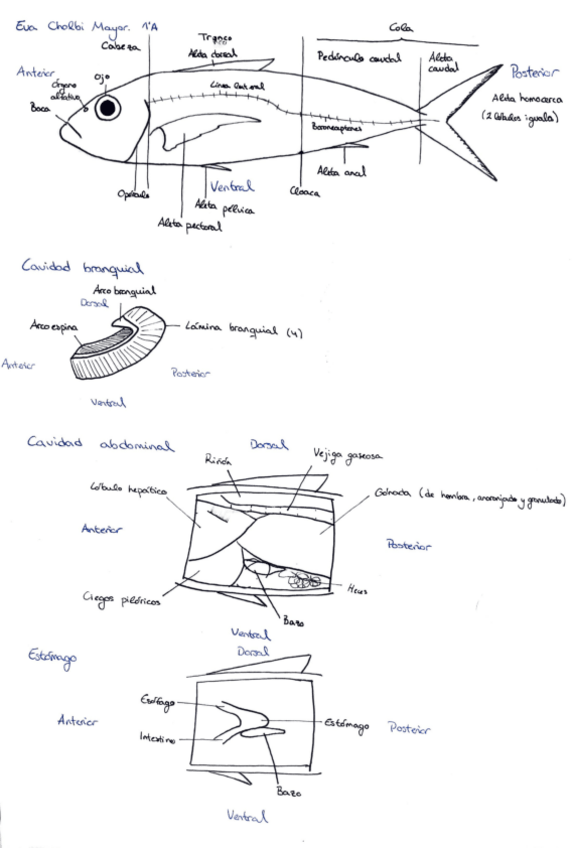 Eva Cholbi Mayor. 1ºA
Tronco
Cola
Cabeza
Aleta dorsal
Pedúnculo caudal
Aleta caudal
Anterior
Órgano olfativo
Ojo
Línea lateral
Posterior
Boca
Aleta homocerca
(2 lóbulos iguales)
Opérculo
Ventral
Aleta pélvica
Aleta pectoral
Cloaca
Aleta anal
Cavidad branquial
Arco branquial
Dorsal
Arco espina
Lámina branquial (4)
Anterior
Posterior
Ventral
Cavidad abdominal
Dorsal
Riñón
Vejiga gaseosa
Lóbulo hepático
Gónada (de hembra, anaranjado y granulado)
Anterior
Posterior
Ciegos pilóricos
Heces
Bazo
Ventral
Estómago
Dorsal
Esófago
Anterior
Estómago
Posterior
Intestino
Bazo
Ventral